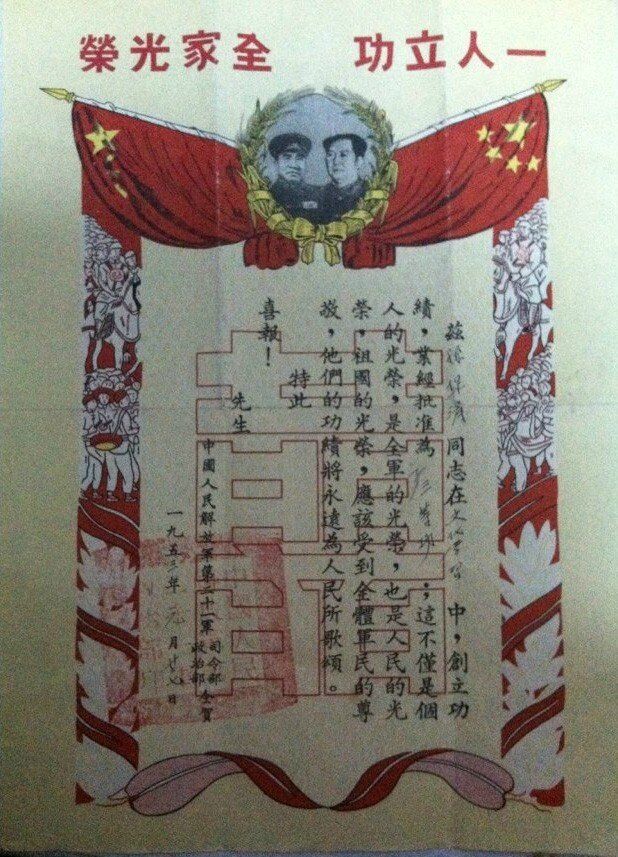 一人立功 全家光榮
茲 同志在 中，創立功
績，業經批准為三等功；這不僅是個
人的光榮，是全軍的光榮，也是人民的光
榮，祖國的光榮，應該受到全體軍民的尊
敬，他們的功績將永遠為人民所歌頌。
特此
喜報！
先生
中國人民解放軍第二十一軍 司令部 政治部 全賀
一九五三年元月廿七日